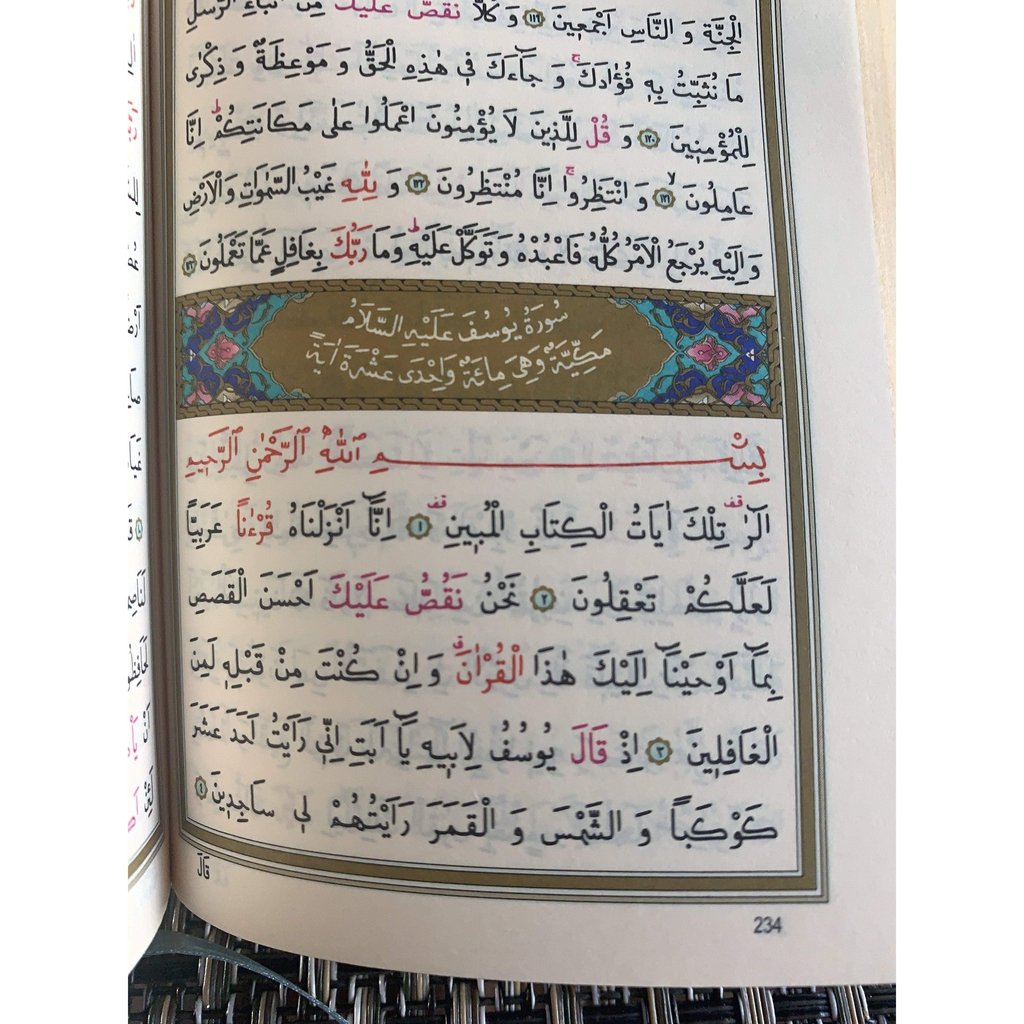 الْجِنَّةِ وَ النَّاسِ اَجْمَعٖينَ ﴿١١٩﴾ وَ كُلًّا نَقُصُّ عَلَيْكَ مِنْ اَنْبَٓاءِ الرُّسُلِ
مَا نُثَبِّتُ بِهٖ فُؤٰادَكَۚ وَ جَٓاءَكَ فٖى هٰذِهِ الْحَقُّ وَ مَوْعِظَةٌ وَ ذِكْرٰى
لِلْمُؤْمِنٖينَ ﴿١٢٠﴾ وَ قُلْ لِلَّذٖينَ لَا يُؤْمِنُونَ اعْمَلُوا عَلٰى مَكَانَتِكُمْؕ اِنَّا
عَامِلُونَۙ ﴿١٢١﴾ وَ انْتَظِرُواۚ اِنَّا مُنْتَظِرُونَ ﴿١٢٢﴾ وَ لِلّٰهِ غَيْبُ السَّمٰوَاتِ وَالْاَرْضِ
وَ اِلَيْهِ يُرْجَعُ الْاَمْرُ كُلُّهُ فَاعْبُدْهُ وَ تَوَكَّلْ عَلَيْهِؕ وَمَا رَبُّكَ بِغَافِلٍ عَمَّا تَعْمَلُونَ ﴿١٢٣﴾
سُورَةُ يُوسُفَ عَلَيْهِ السَّلَامُ
مَكِّيَّةٌ وَهِىَ مِائَةٌ وَاِحْدَى عَشْرَةَ اٰيَةً
بِسْمِ اللّٰهِ الرَّحْمٰنِ الرَّحٖيمِ
الٓرٰ۠ تِلْكَ اٰيَاتُ الْكِتَابِ الْمُبٖينِ۠ ﴿١﴾ اِنَّٓا اَنْزَلْنَاهُ قُرْءٰنًا عَرَبِيًّا
لَعَلَّكُمْ تَعْقِلُونَ ﴿٢﴾ نَحْنُ نَقُصُّ عَلَيْكَ اَحْسَنَ الْقَصَصِ
بِمَٓا اَوْحَيْنَٓا اِلَيْكَ هٰذَا الْقُرْاٰنَۗ وَ اِنْ كُنْتَ مِنْ قَبْلِهٖ لَمِنَ
الْغَافِلٖينَ ﴿٣﴾ اِذْ قَالَ يُوسُفُ لِاَبٖيهِ يَٓا اَبَتِ اِنّٖى رَاَيْتُ اَحَدَ عَشَرَ
كَوْكَبًا وَ الشَّمْسَ وَ الْقَمَرَ رَاَيْتُهُمْ لٖى سَاجِدٖينَ ﴿٤﴾
قَالَ
234